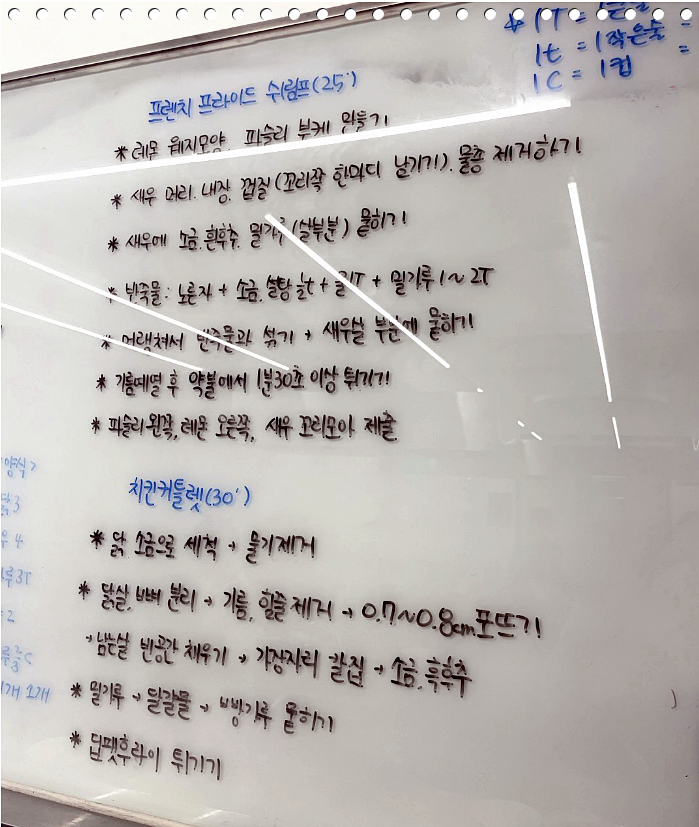 * 1T = 1큰술 =
1t = 1작은술 =
1C = 1컵 =
프렌치 프라이드 쉬림프(25')
* 레몬 웨지모양, 파슬리 부케 만들기
* 새우 머리, 내장, 껍질(꼬리쪽 한마디 남기기), 물총 제거하기
* 새우에 소금, 흰후추, 밀가루(살부분) 묻히기
* 반죽물: 노른자 + 소금, 설탕 + 물1T + 밀가루 1~2T
* 머랭쳐서 반죽물과 섞기 + 새우살 부분에 묻히기
* 기름예열 후 약불에서 1분30초 이상 튀기기
* 파슬리 왼쪽, 레몬 오른쪽, 새우 꼬리모아 제출
치킨커틀렛(30')
* 닭 소금으로 세척 → 물기제거
* 닭살, 뼈 분리 → 기름, 힘줄 제거 → 0.7~0.8cm 포뜨기
→ 남는살 빈공간 채우기 → 가장자리 칼집 → 소금, 흑후추
* 밀가루 → 달걀물 → 빵가루 묻히기
* 딥팻후라이 튀기기
양식>
닭3
4
루3T
2
1개 소개